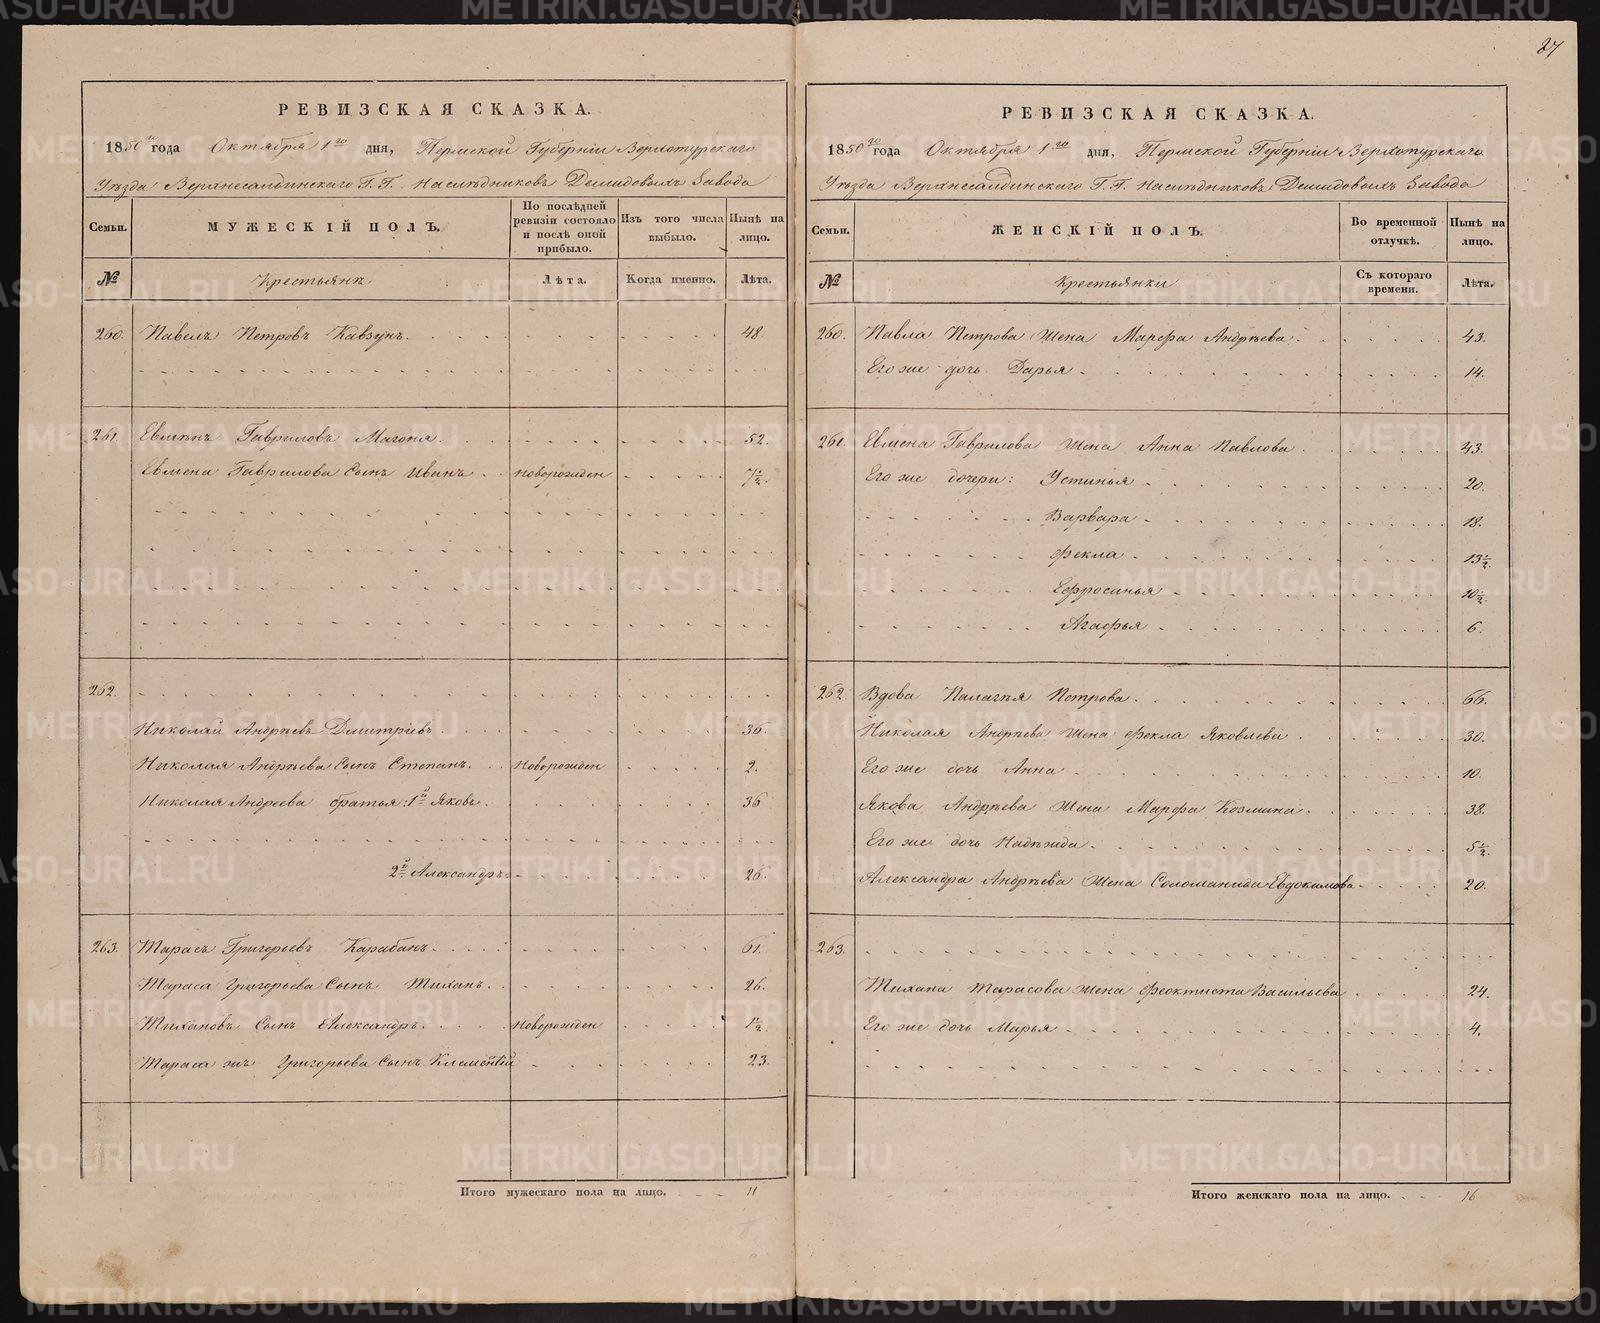 27
РЕВИЗСКАЯ СКАЗКА.
1850го года Октября 1го дня, Пермской Губерніи Верхотурскаго
Уѣзда Верхнесалдинскаго Г.Г. Наслѣдниковъ Демидовыхъ Завода
Семьи. МУЖЕСКІЙ ПОЛЪ. По послѣдней ревизіи состояло и послѣ оной прибыло. Изъ того числа выбыло. Нынѣ на лицо.
№ Крестьянъ Лѣта. Когда именно. Лѣта.
260. Павелъ Петровъ Кавзунъ. 48.
261. Евменъ Гавриловъ Магоня. 52.
Евмена Гаврилова Сынъ Иванъ новорожден 7½.
262.
Николай Андреевъ Дмитріевъ. 36.
Николая Андрѣева Сынъ Степанъ. Новорожден 2.
Николая Андреева братья: 1й Яковъ. 36
2й Александръ 26.
263. Тарасъ Григорьевъ Карабанъ. 61.
Тараса Григорьева Сынъ Тиханъ. 26.
Тихановъ Сынъ Александръ. Новорожден 1½.
Тараса же Григорьева Сынъ Клементій 23.
Итого мужескаго пола на лицо. 11
РЕВИЗСКАЯ СКАЗКА.
1850го года Октября 1го дня, Пермской Губерніи Верхотурскаго
Уѣзда Верхнесалдинскаго Г.Г. Наслѣдниковъ Демидовыхъ Завода
Семьи. ЖЕНСКІЙ ПОЛЪ. Во временной отлучкѣ. Нынѣ на лицо.
№ Крестьянки Съ котораго времени. Лѣта.
260. Павла Петрова Жена Марфа Андрѣева. 43.
Его же дочь Дарья. 14.
261. Евмена Гаврилова Жена Анна Павлова 43.
Его же дочери: Устинья 20.
Варвара 18.
Фекла 13½.
Ефросинья 10½.
Агафья 6.
262. Вдова Палагия Петрова. 66.
Николая Андрѣева Жена Фекла Яковлева 30.
Его же дочь Анна 10.
Якова Андрѣева Жена Марфа Козмина. 38.
Его же дочь Надежда. 5½.
Александра Андрѣева Жена Соломанида Евдокимова 20.
263.
Тихана Тарасова жена Феоктиста Васильева 24.
Его же дочь Марья 4.
Итого женскаго пола на лицо. 16
METRIKI.GASO-URAL.RU